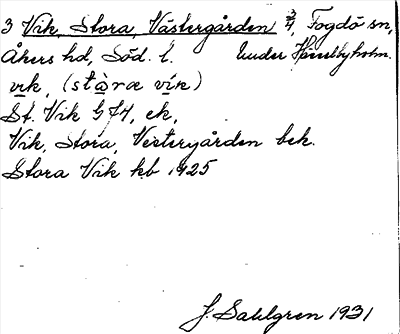 3 Vik, Stora, Västergården 3/4, Fogdö sn,
Åkers hd, Söd. l. Under Hässelbyholm.
vik, (stòra vík)
St. Vik G J4, ek,
Vik, Stora, Vestergården bek.
Stora Vik kb 1925
J. Sahlgren 1931